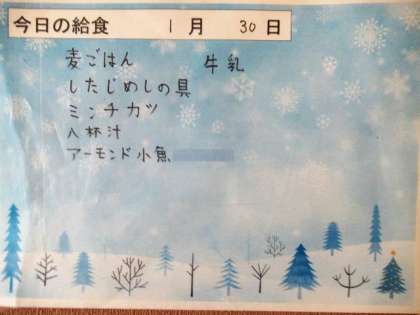 今日の給食 1月 30日
麦ごはん 牛乳
したじめしの具
ミンチカツ
八杯汁
アーモンド小魚